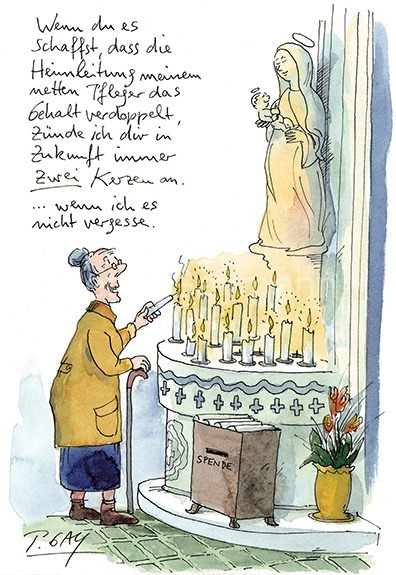 Wenn du es
schaffst, dass die
Heimleitung meinem
netten Pfleger das
Gehalt verdoppelt,
zünde ich dir in
Zukunft immer
zwei Kerzen an.
... wenn ich es
nicht vergesse.
SPENDE
P. GAY